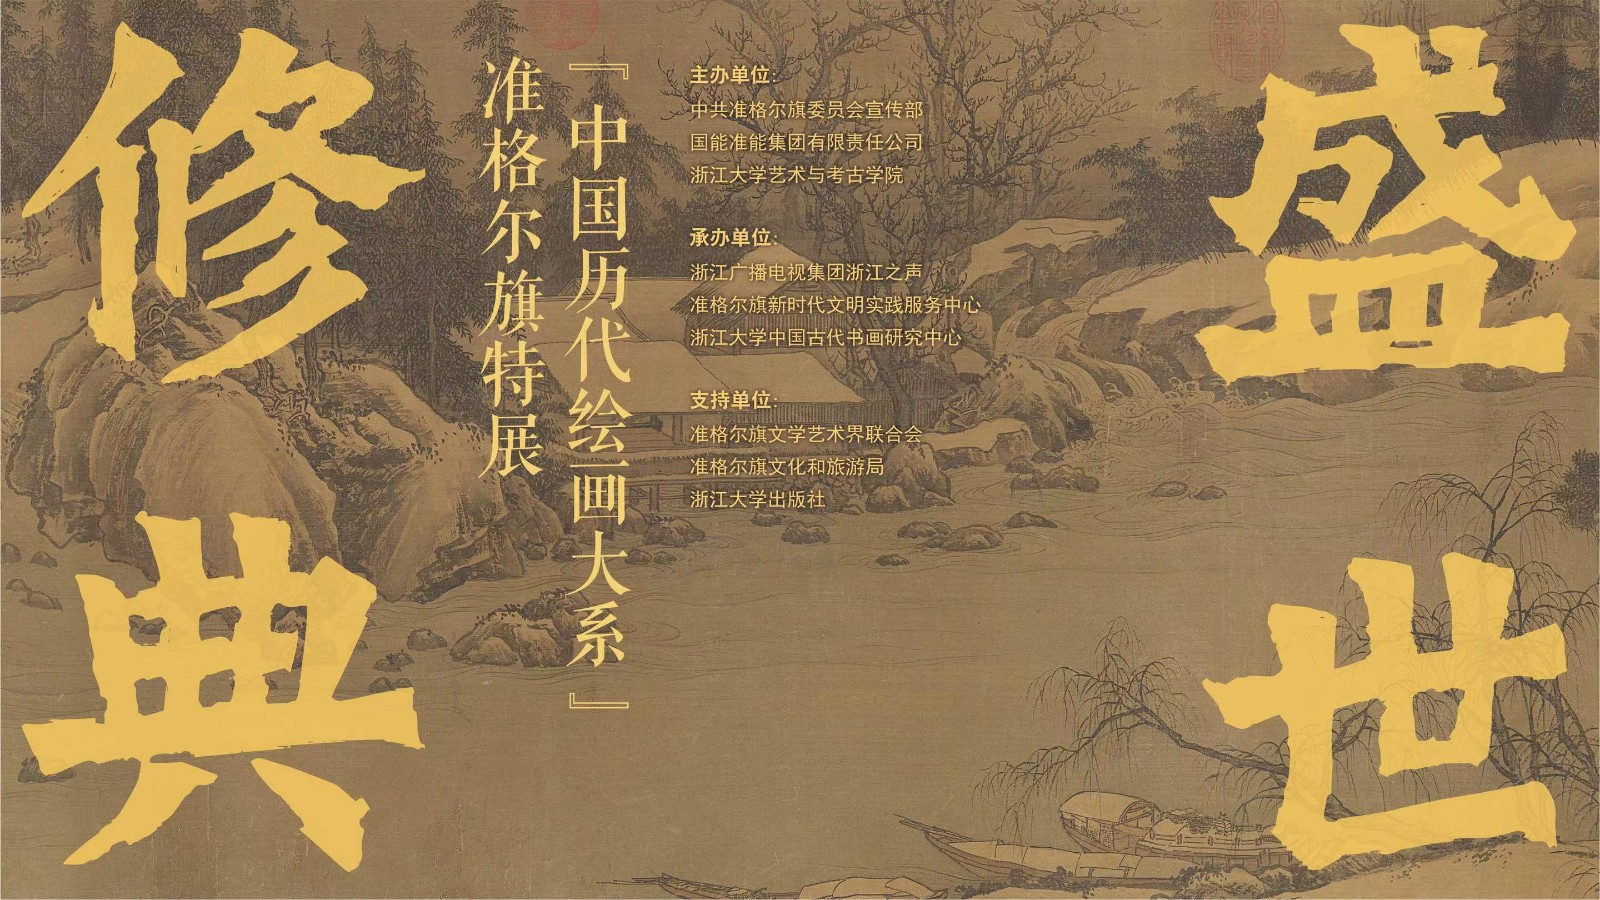 盛世
修典
『中国历代绘画大系』
准格尔旗特展
主办单位:
中共准格尔旗委员会宣传部
国能准能集团有限责任公司
浙江大学艺术与考古学院
承办单位:
浙江广播电视集团浙江之声
准格尔旗新时代文明实践服务中心
浙江大学中国古代书画研究中心
支持单位:
准格尔旗文学艺术界联合会
准格尔旗文化和旅游局
浙江大学出版社